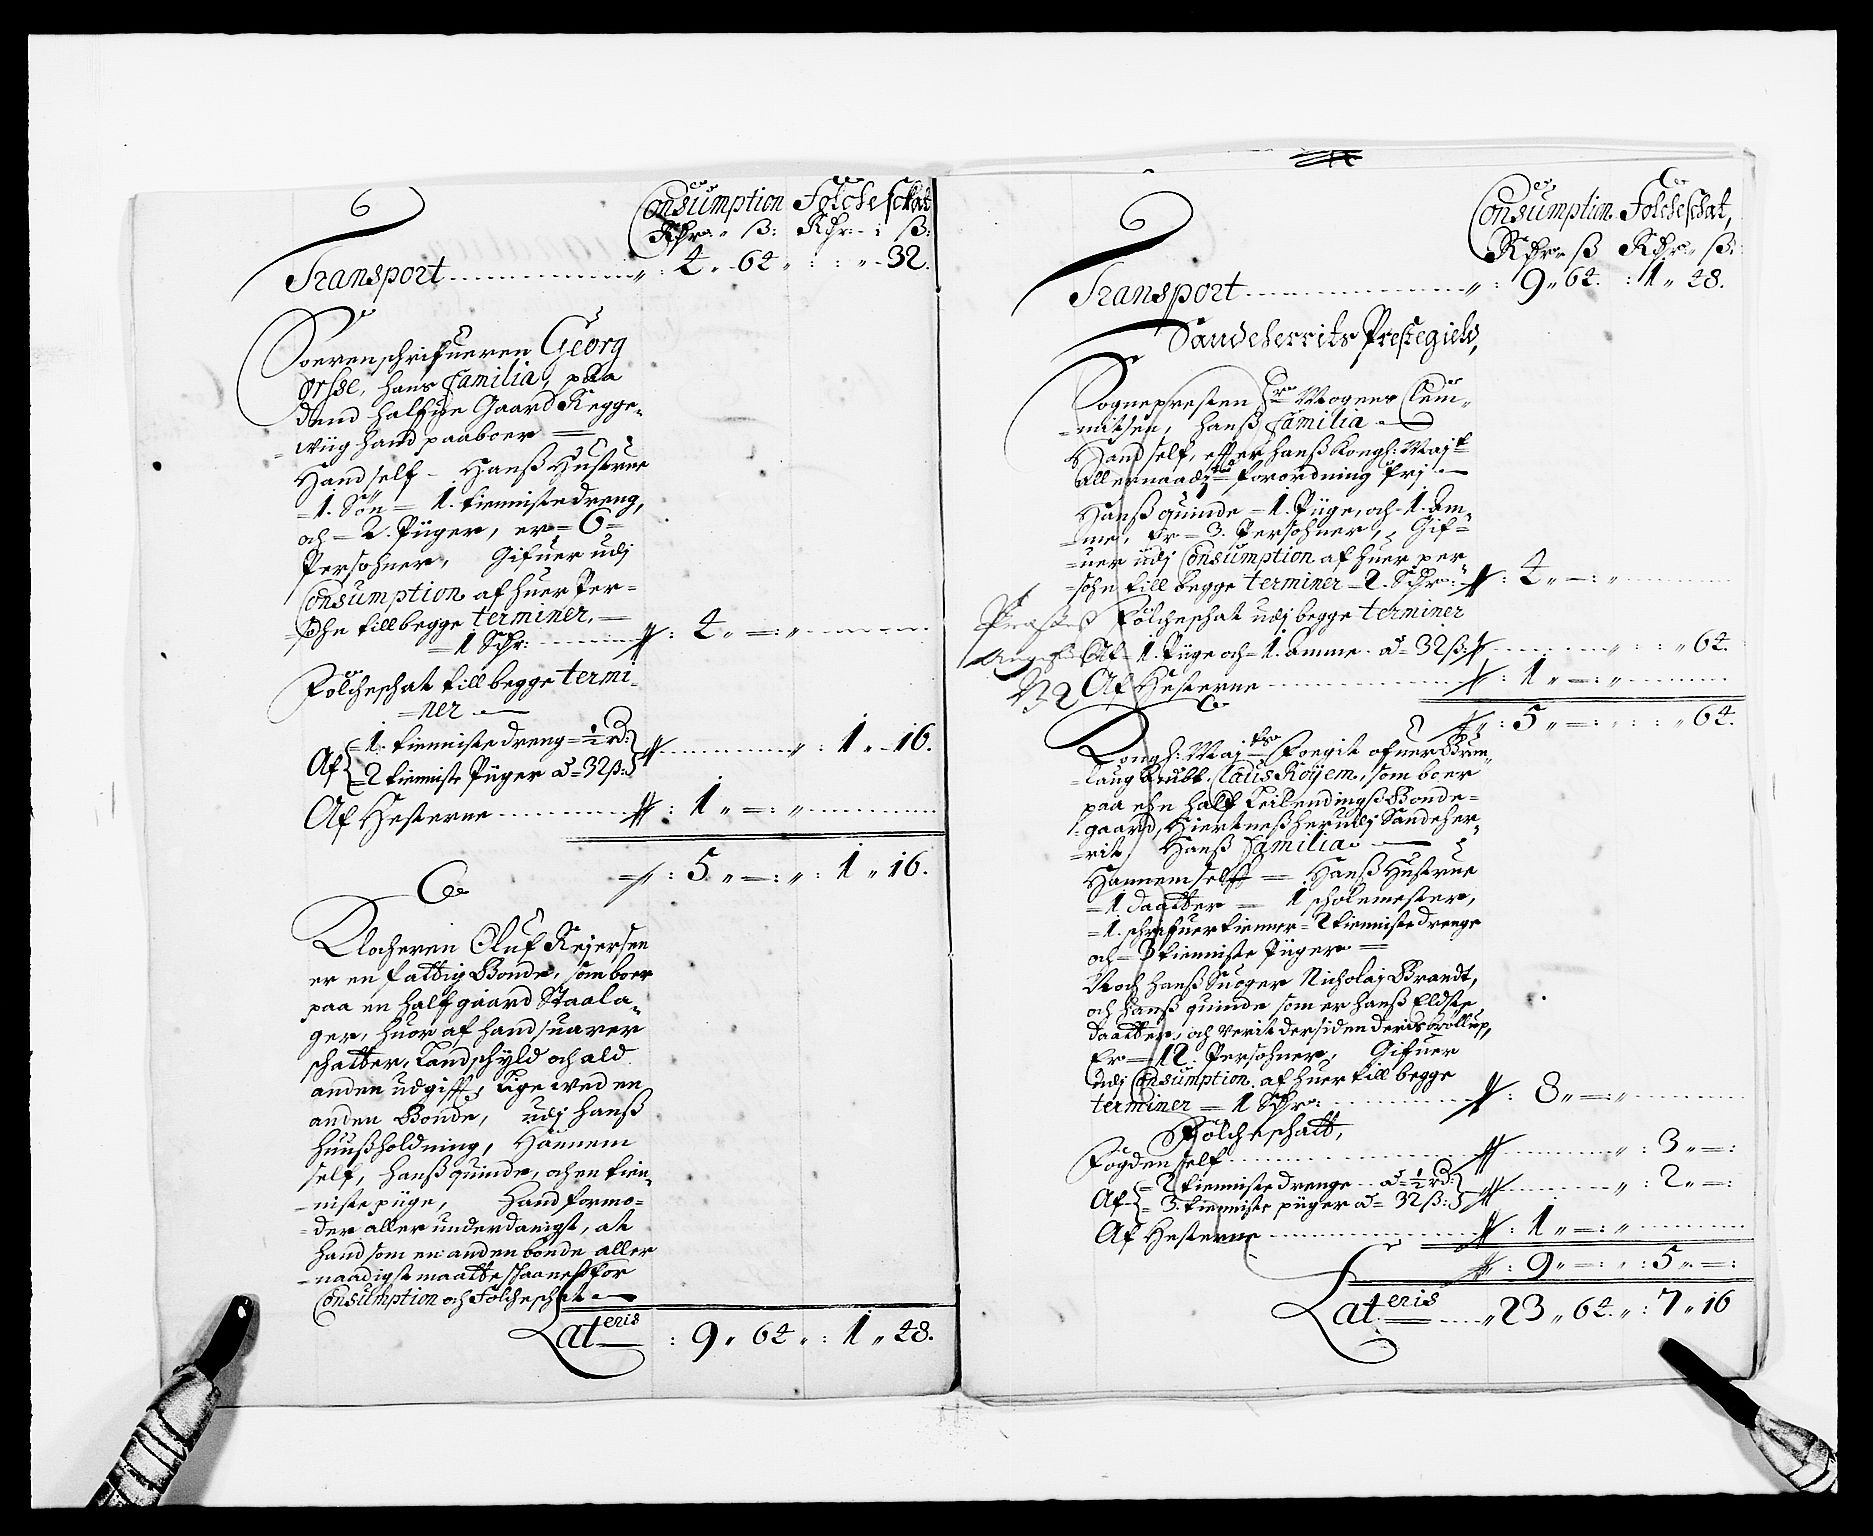 Consumption Folcheschat
Rdr: ß: Rdr: ß:
Transport 4 64 32.
Soerenschrifueren Georg
Orsse, hans familia, paa
dend halfue Gaard Regge-
wiig hand paaboer
Hand self - Hanß Hustrue
1. Sön - 1. tienniste dreng,
och - 2. Piiger, er = 6 =
Persohner, Gifuer udj
Consumption af huer Per-
sohn till begge terminer.
1 Rdr: 4
Fölcheschat till begge termi-
ner
Af 1. tienniste dreng = ½ rd:
2 tienniste Piiger a = 32 ß: 1 16.
Af Hesterne 1
5 1 16.
Klocheren Oluf Reiersen
er en fattig Bonde, som boer
paa en half gaard Staala-
ger, huor af hand suarer
schatter, Landschyld och ald
anden udgifft, lige wed en
anden Bonde, udj hanß
huußholdning, Hannem
self, hanß quinde, och en tien-
niste piige, Hand formo-
der aller underdanigst, at
hand som en anden bonde aller
naadigst maatte schaanes for
Consumption och Folcheschat
Lateris 9 64 1 48.
Consumption Folcheschat,
Rdr ß Rdr ß:
Transport 9 64. 1 48.
Sandeherrits Prestegield,
Sognepresten Hr Mogens Clem-
mitsen, hanß familia
Hand self, efter hanß Kongl: Maj:
Allernaadigste forordning Frj
Hanß quinde - 1. Piige, och - 1. Am-
me, Er - 3. Persohner, Gif-
uer udj Consumption af huer per-
sohn till begge terminer - 2. Rdr: 4
Fölcheschat udj begge terminer
Af 1. Piige och - 1. Amme a = 32 ß: 64.
Af Hesterne 1
5 64.
Kongl: Maj: Foegit ofuer Brun-
laug Claus Röyem, som boer
paa ehn half Bonde-
gaard, Hiertneß her udj Sandeher-
rit, Hanß familia
Hannem selff - Hanß Hustrue
1. daatter - 1 scholemester,
1. schrifuer tienner - 2 tienniste drenge
och - 3 tienniste Piiger
Noch hanß Suoger Nicholaj Brandt,
och hanß quinde som er hanß Eldste
daatter, och Verit der siden deris brøllup,
Er 12. Persohner, Gifuer
udj Consumption af huer till begge
terminer - 1 Rdr: 8
Fölcheschatt,
Fogden self 3
Af 2 tienniste drenge a = ½ rd:
3. tienniste piiger a = 32 ß: 2
Af Hesterne 1
9 5
Lateris 23 64. 7 16